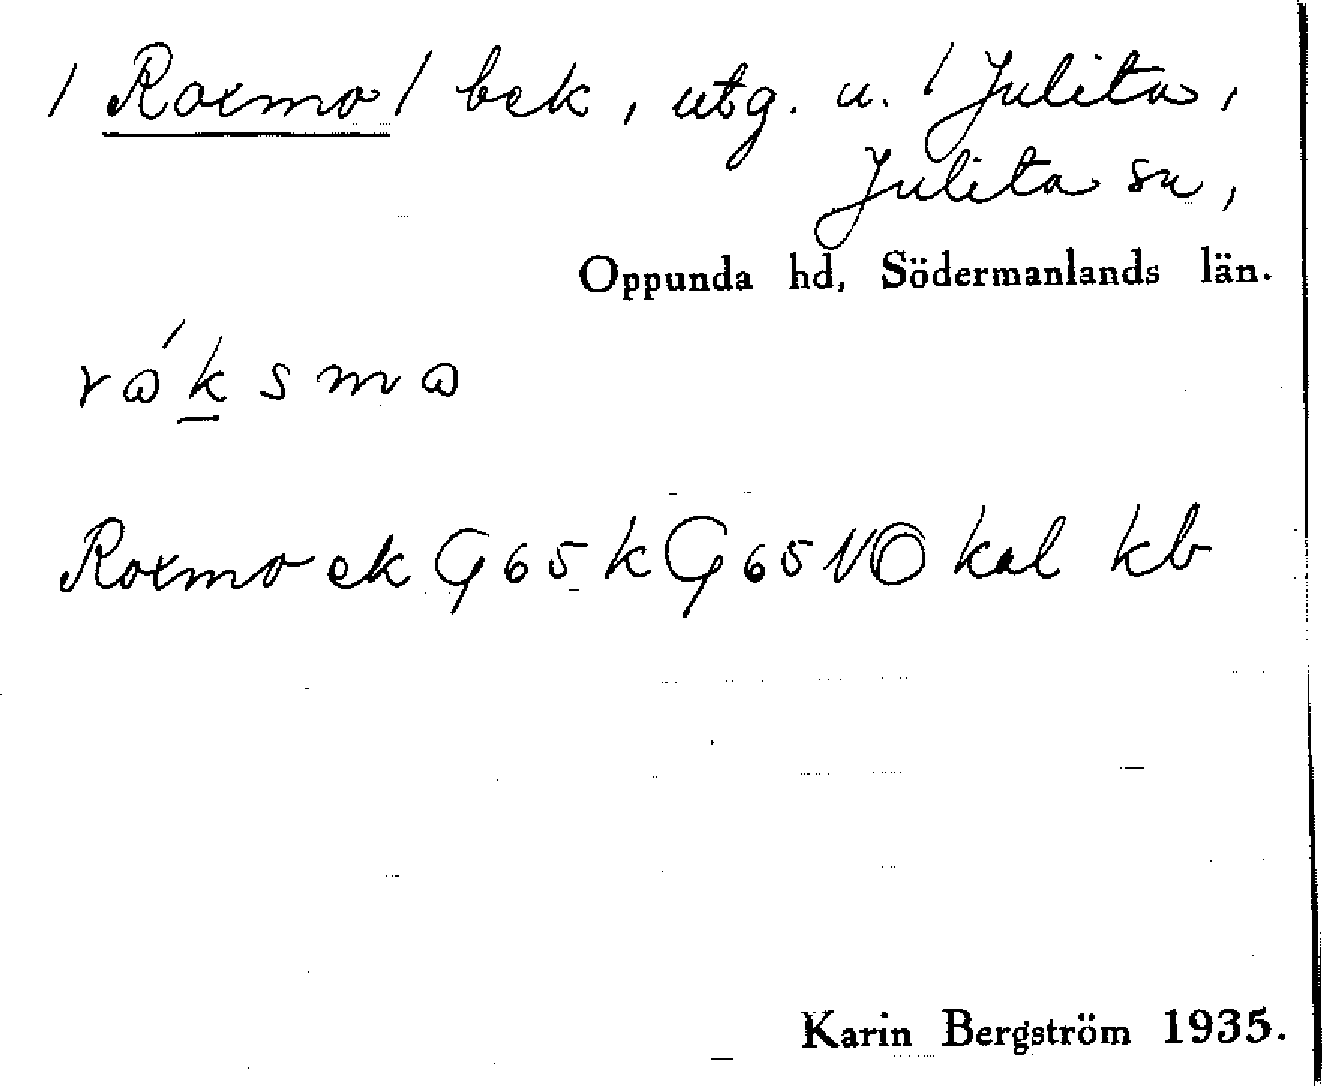 / Roxmo / bek, utg. u. / Julita,
Julita sn,
Oppunda hd, Södermanlands län.
rɷ́ksmɷ
Roxmo ek G65 k G65 NO kal kb
Karin Bergström 1935.